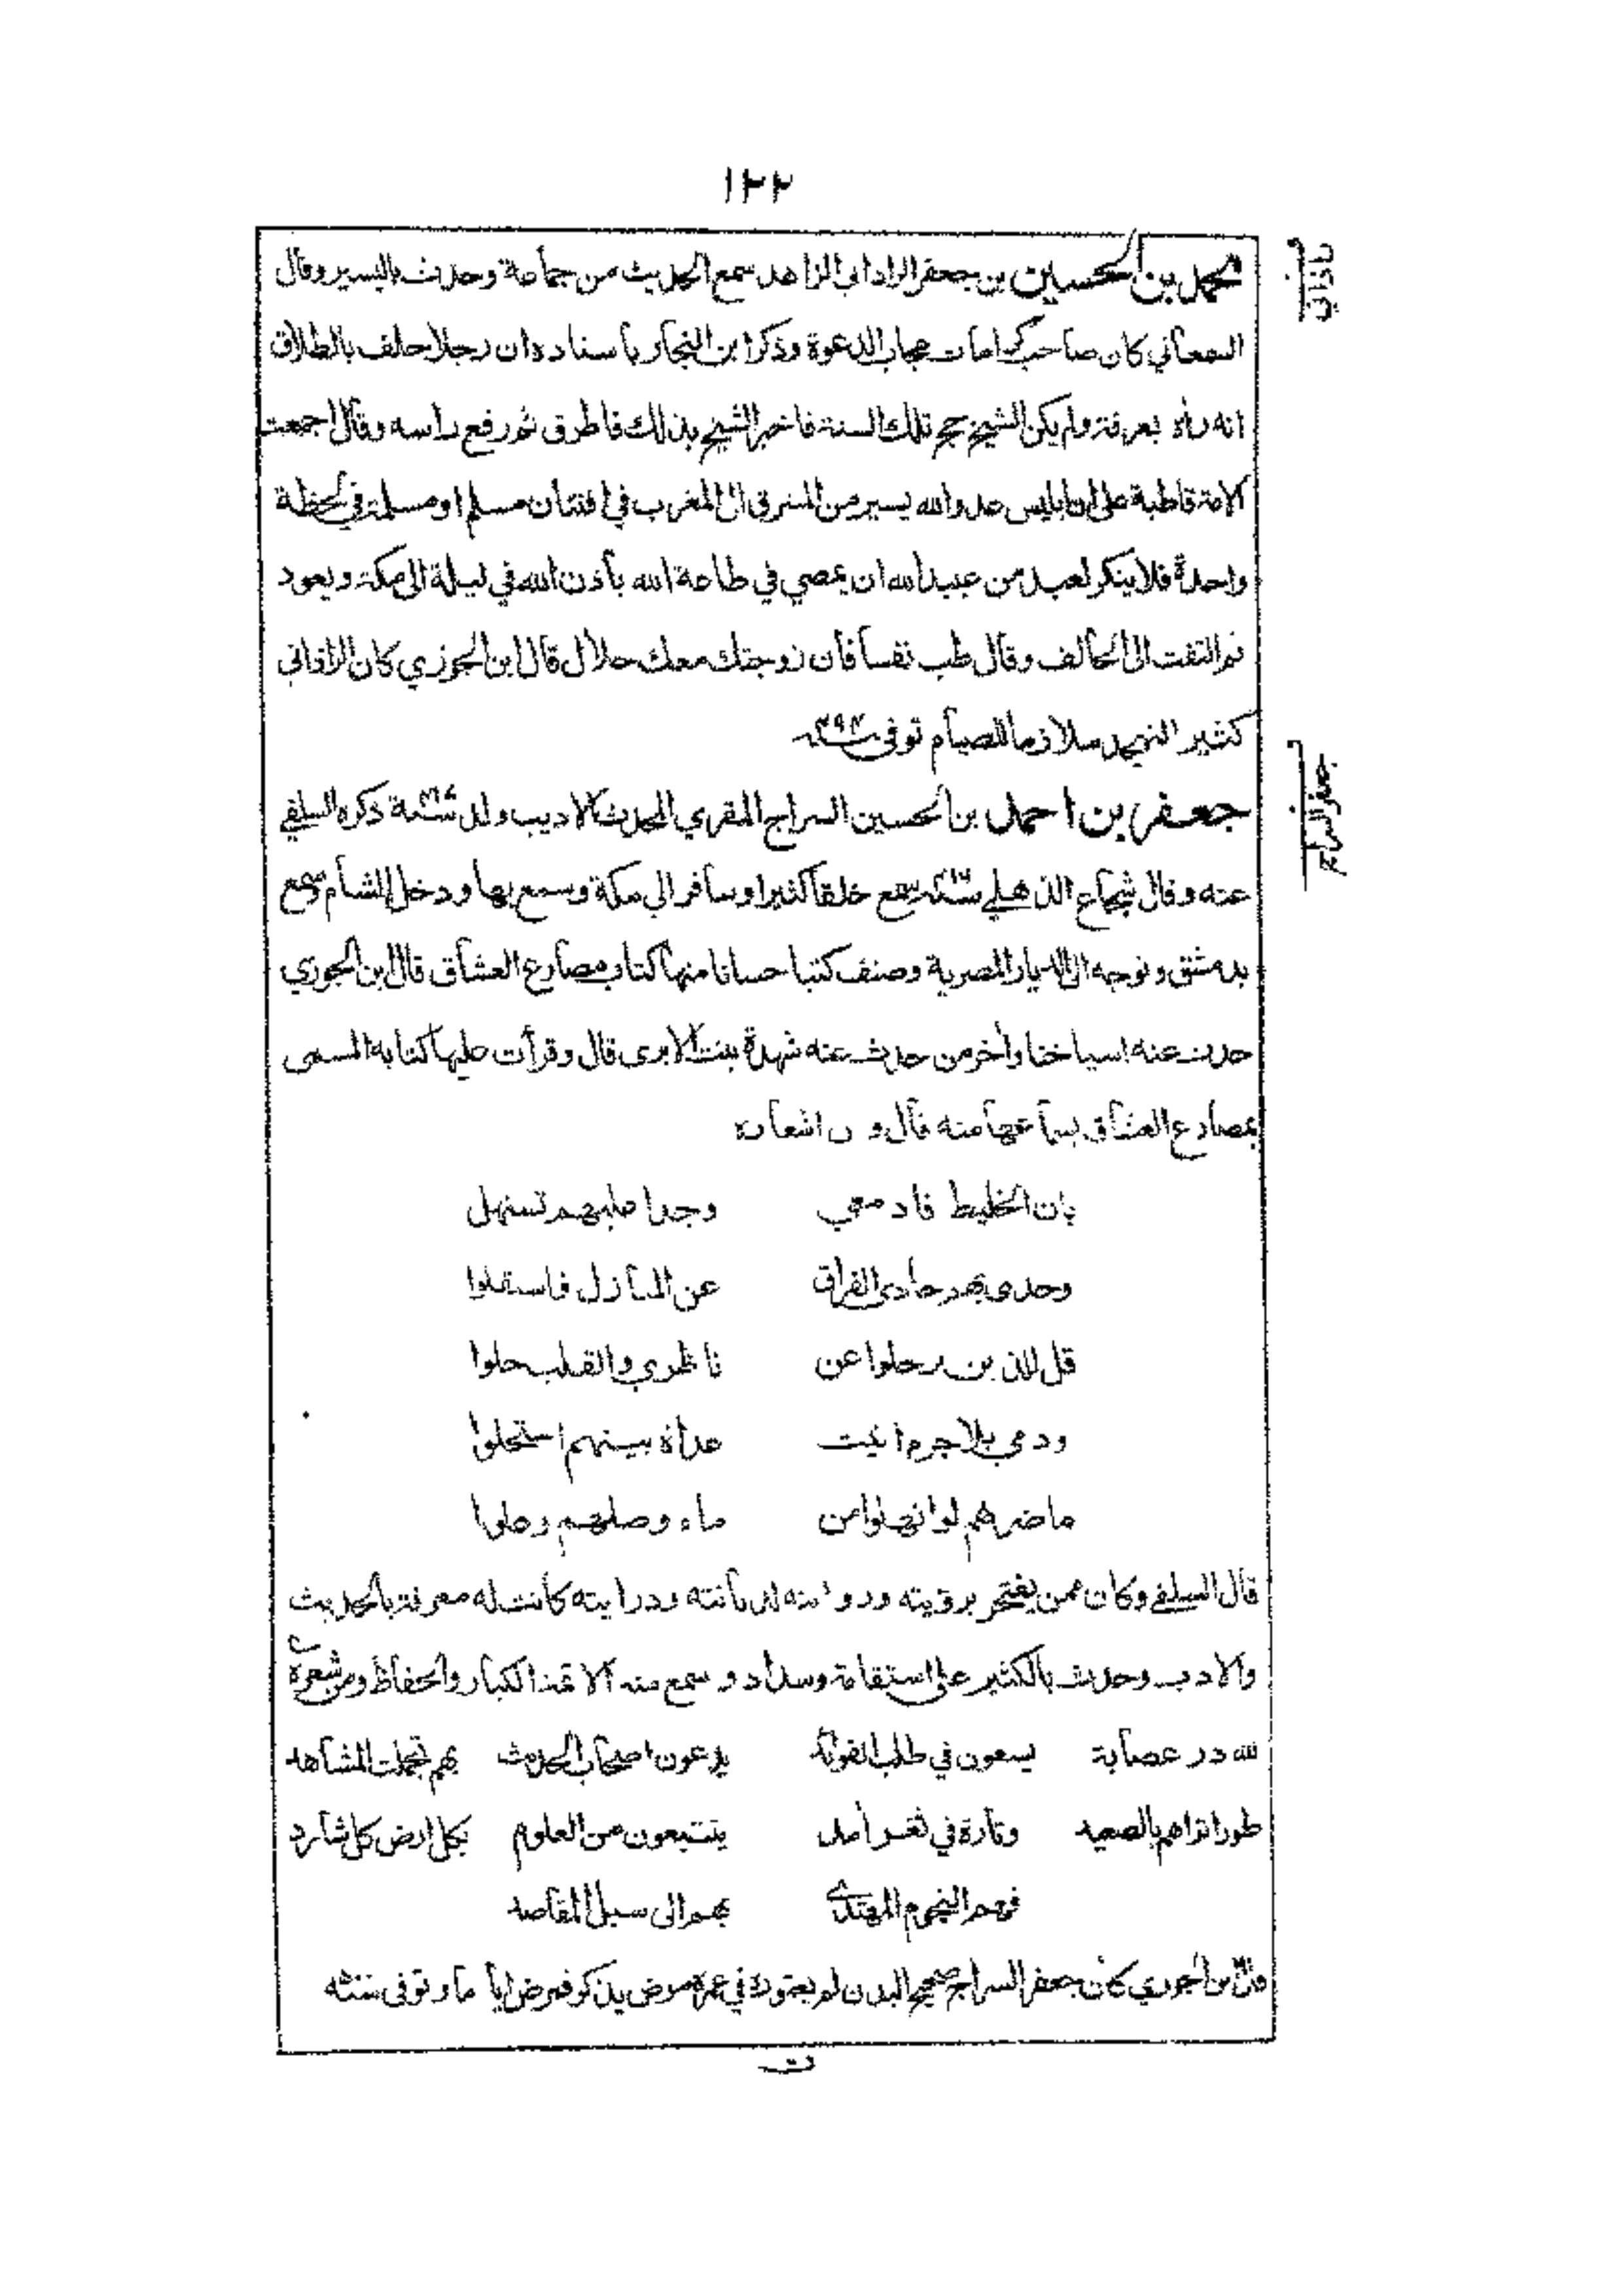 ١٢٢
محمد بن الحسين بن جعفر الراداني الزاهد سمع الحديث من جماعة وحدث باليسير وقال
راذاني
السمعاني كان صاحب كرامات مجاب الدعوة وذكر ابن النجار بأسناده ان رجلا حلف بالطلاق
انه رأه بعرفة ولم يكن الشيخ حج تلك السنة فاخبر الشيخ بذلك فاطرق ثم رفع راسه وقال اجمعت
الامة قاطبة على ان ابليس عدو الله يسير من المشرق الى المغرب في افتتان مسلم او مسلمة في لحظة
واحدة فلا ينكر لعبد من عبيد الله ان يمضي في طاعة الله بأذن الله في ليلة الى مكة ويعود
ثم التفت الى الحالف وقال طب نفسا فأن زوجتك معك حلال قال ابن الجوزي كان الراذاني
كثير التهجد ملازما للصيام توفى
جعفر بن احمد بن الحسين السراج المقري المحدث الاديب ولد ذكره السلفي
جعفر السراج
عنه وقال شجاع الذهلي سمع خلقا كثيرا وسافر الي مكة وسمع بها ودخل الشام وسمع
بدمشق وتوجه الى الديار المصرية وصنف كتبا حسانا منها كتاب مصارع العشاق قال ابن الجوزي
حدث عنه اسياخنا وأخر من حدث عنه شهدة بنت الابرى قال وقرأت عليها كتابه المسمى
بمصارع العشاق بسماعها منه قال و اشعاره
بان الخليط فادمعي وجدا عليهم تستهل
وحدى بهم حادى الفراق عن المنازل فاستقلوا
قل للذين رحلوا عن ناظري والقلب حلوا
ودمي بلا جرم اتيت غداة بينهم استحلوا
ماضرهم لو انهلوا من ماء وصلهم وعلوا
قال السلفي وكان ممن يفتخر برؤيته وروايته لديانته ودرايته كانت له معرفة بالحديث
والادب وحدث بالكثير على استقامة وسداد وسمع منه الائمة الكبار والحفاظ ومن شعره
لله در عصابة يسعون في طلب الفوائد يدعون اصحاب الحديث بهم تجملت المشاهد
طورا تراهم بالصعيد وتارة في ثغر أمد يتتبعون من العلوم بكل ارض كل شارد
فهم النجوم المهتدى بهم الى سبل المقاصد
قال ابن الجوزي كان جعفر السراج صحيح البدن لم يعتوره في عمره مرض يذكر فمرض اياما وتوفى سنة